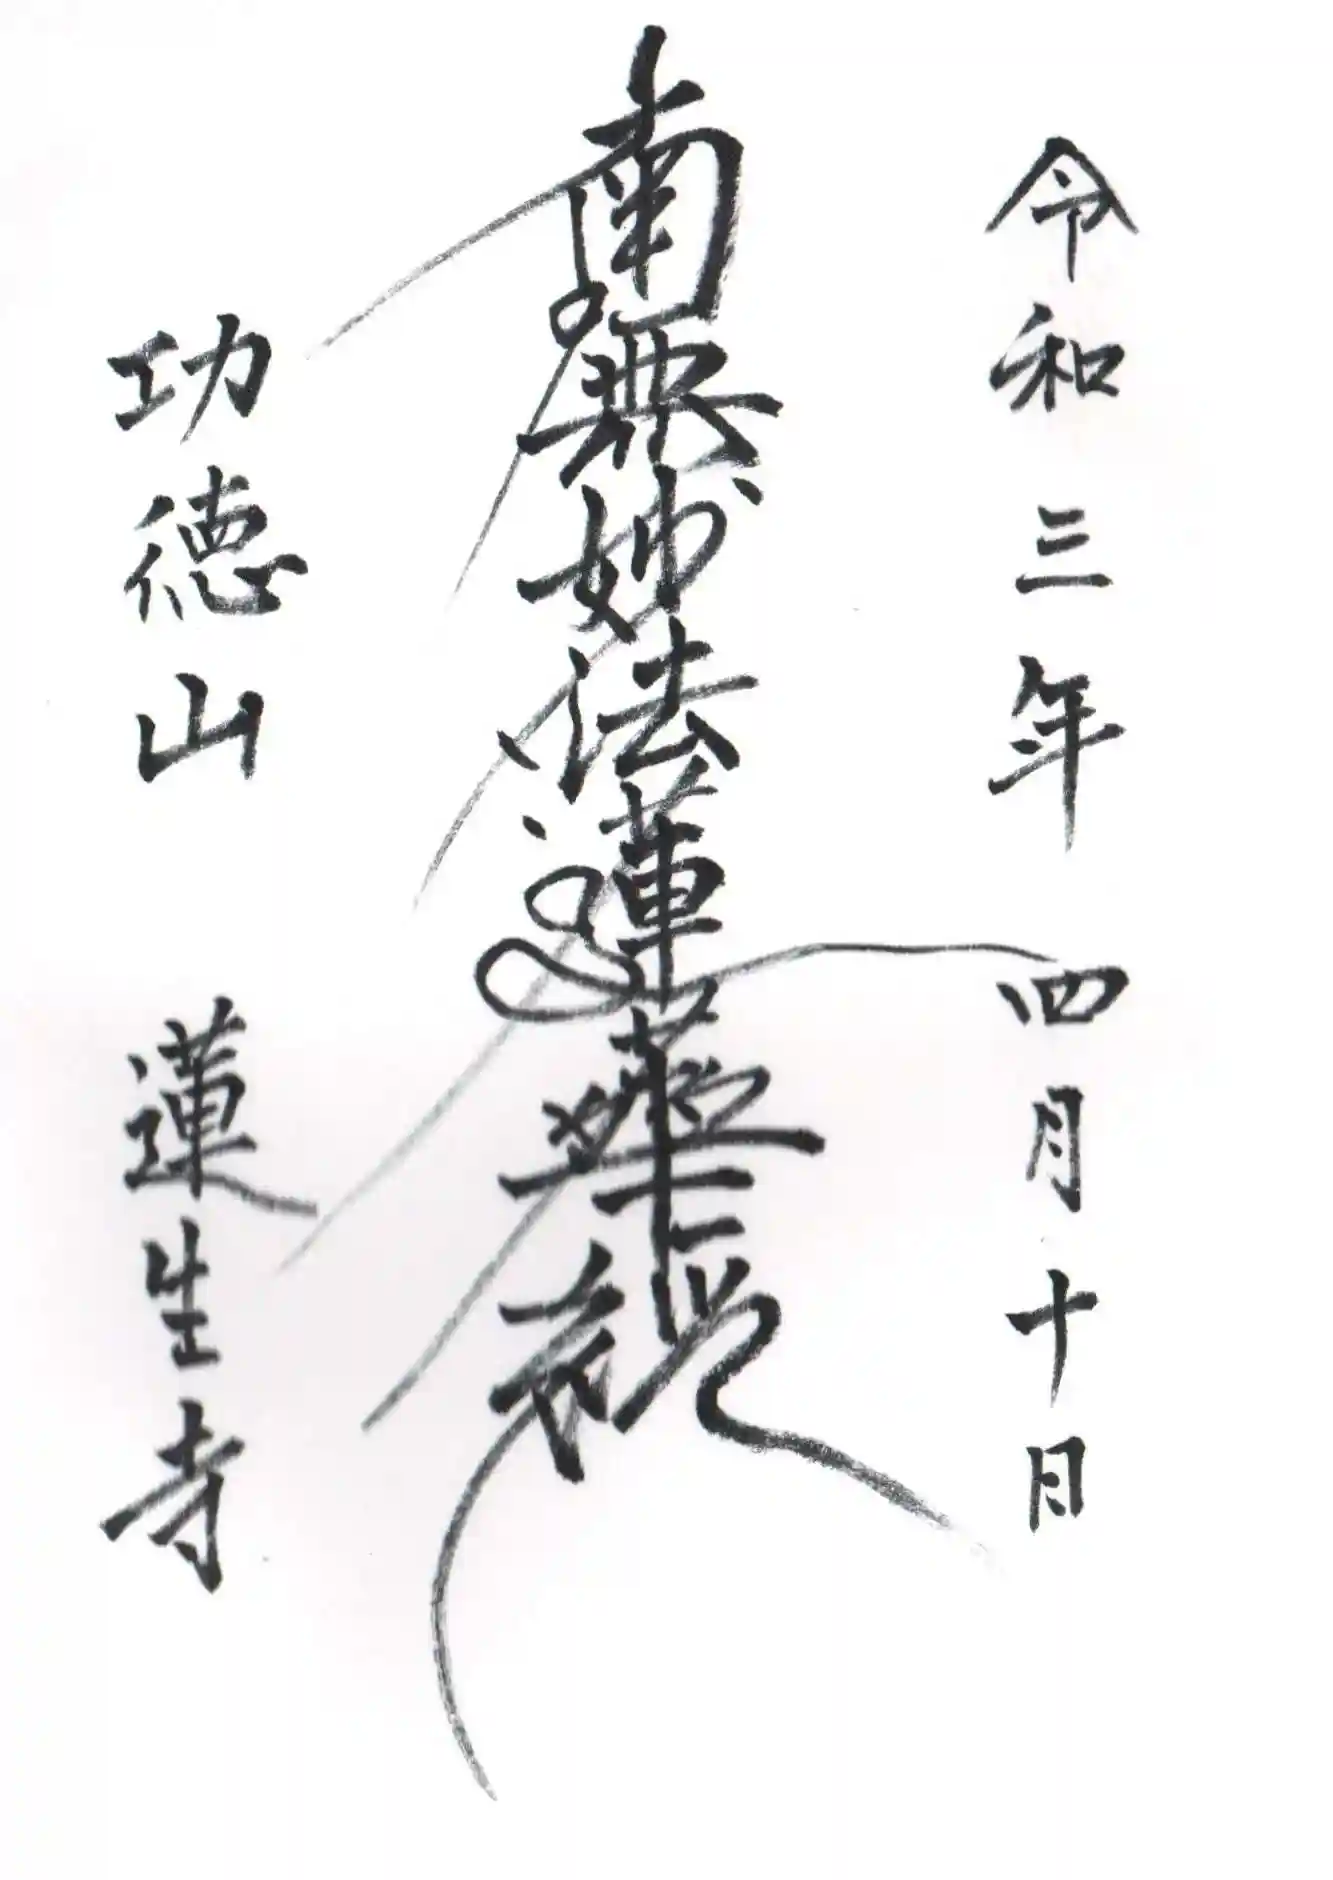 令和三年四月十日
南無妙法蓮華経
功徳山 蓮生寺